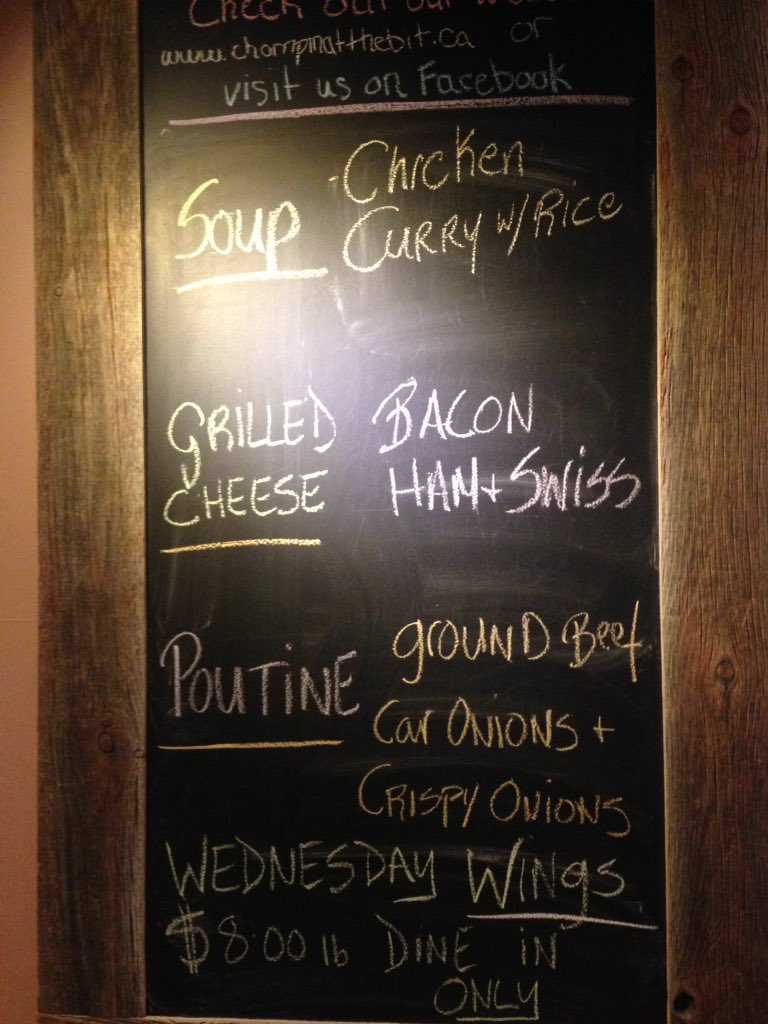 Check out our
www.chompinatthebit.ca or
visit us on Facebook
Soup - Chicken
Curry w/ Rice
GRILLED BACON
CHEESE HAM + SWISS
POUTINE GROUND Beef
Car ONIONS +
CRISPY ONIONS
WEDNESDAY WINgS
$8.00 lb DINE iN
ONLY